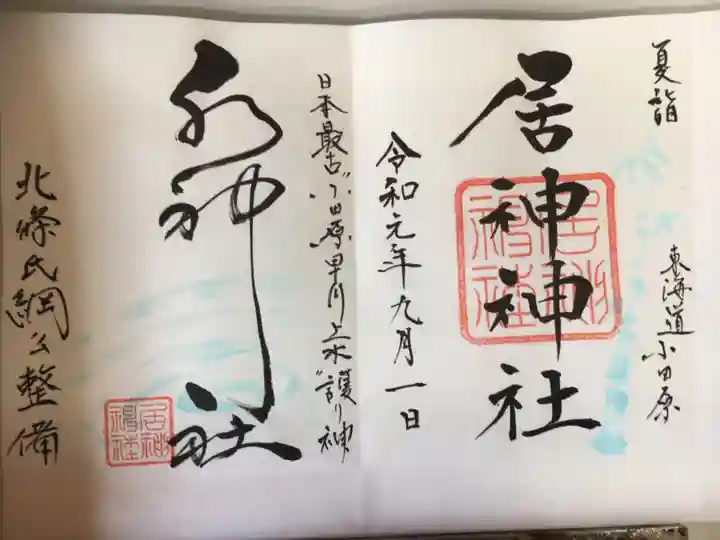 夏詣
東海道小田原
居神神社
居神神社
令和元年九月一日
日本最古"小田原早川上水"護り神
水神社
居神神社
北條氏綱公整備